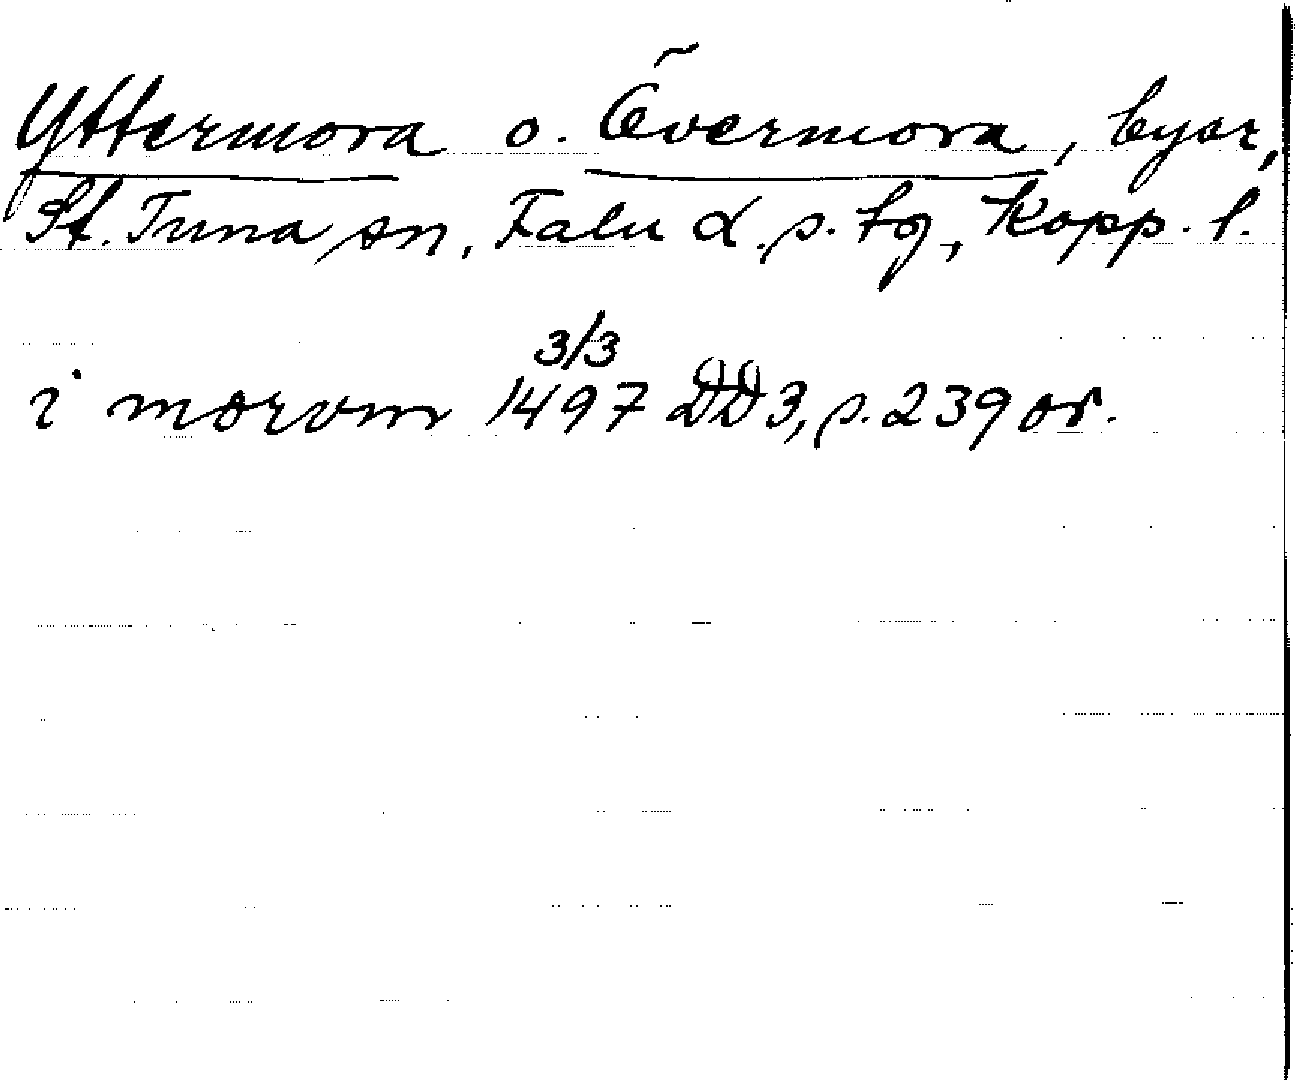 Yttermora o. Övermora, byar,
St. Tuna sn, Falu d.s. tg, Kopp. l.
i morom 3/3 1497 DD 3, s. 239 or.